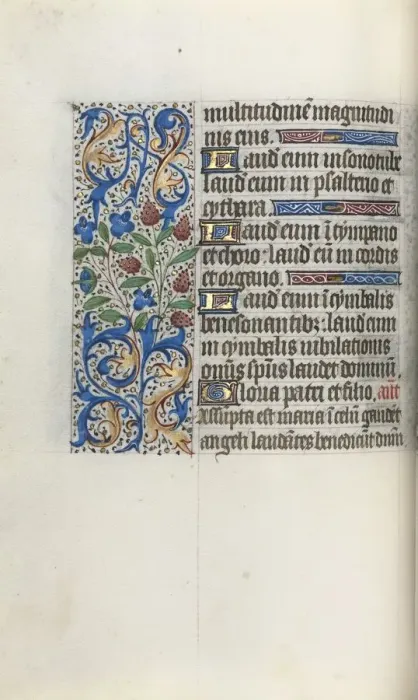 multitudinē magnitudi
nis eius.
Laud eum in sono tube
laud eum in psalterio et
cythara.
Laud eum ī tympano
et choro: laud eū in cordis
et organo.
Laud eum ī cymbalis
benesonantibꝫ: laud eum
in cymbalis iubilationis
omīs spūs laudet dominū.
Gloria patri et filio. añt
Assūpta est maria ī celū gaudēt
angeli laudātes benedicūt dnm̄